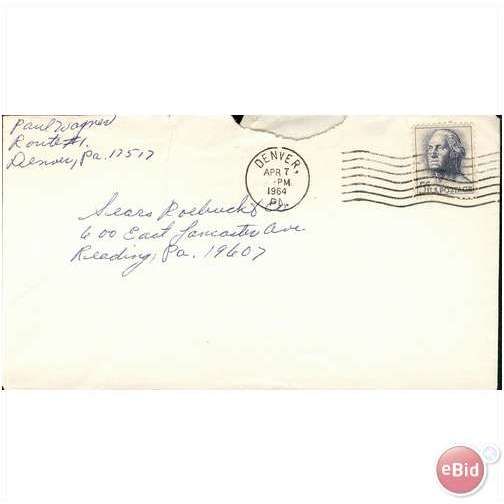 Paul Wagner
Route #1.
Denver, Pa. 17517
DENVER,
APR 7
-PM
1964
PA.
5c U.S. POSTAGE
Sears Roebuck & Co.
600 East Lancaster Ave.
Reading, Pa. 19607
eBid